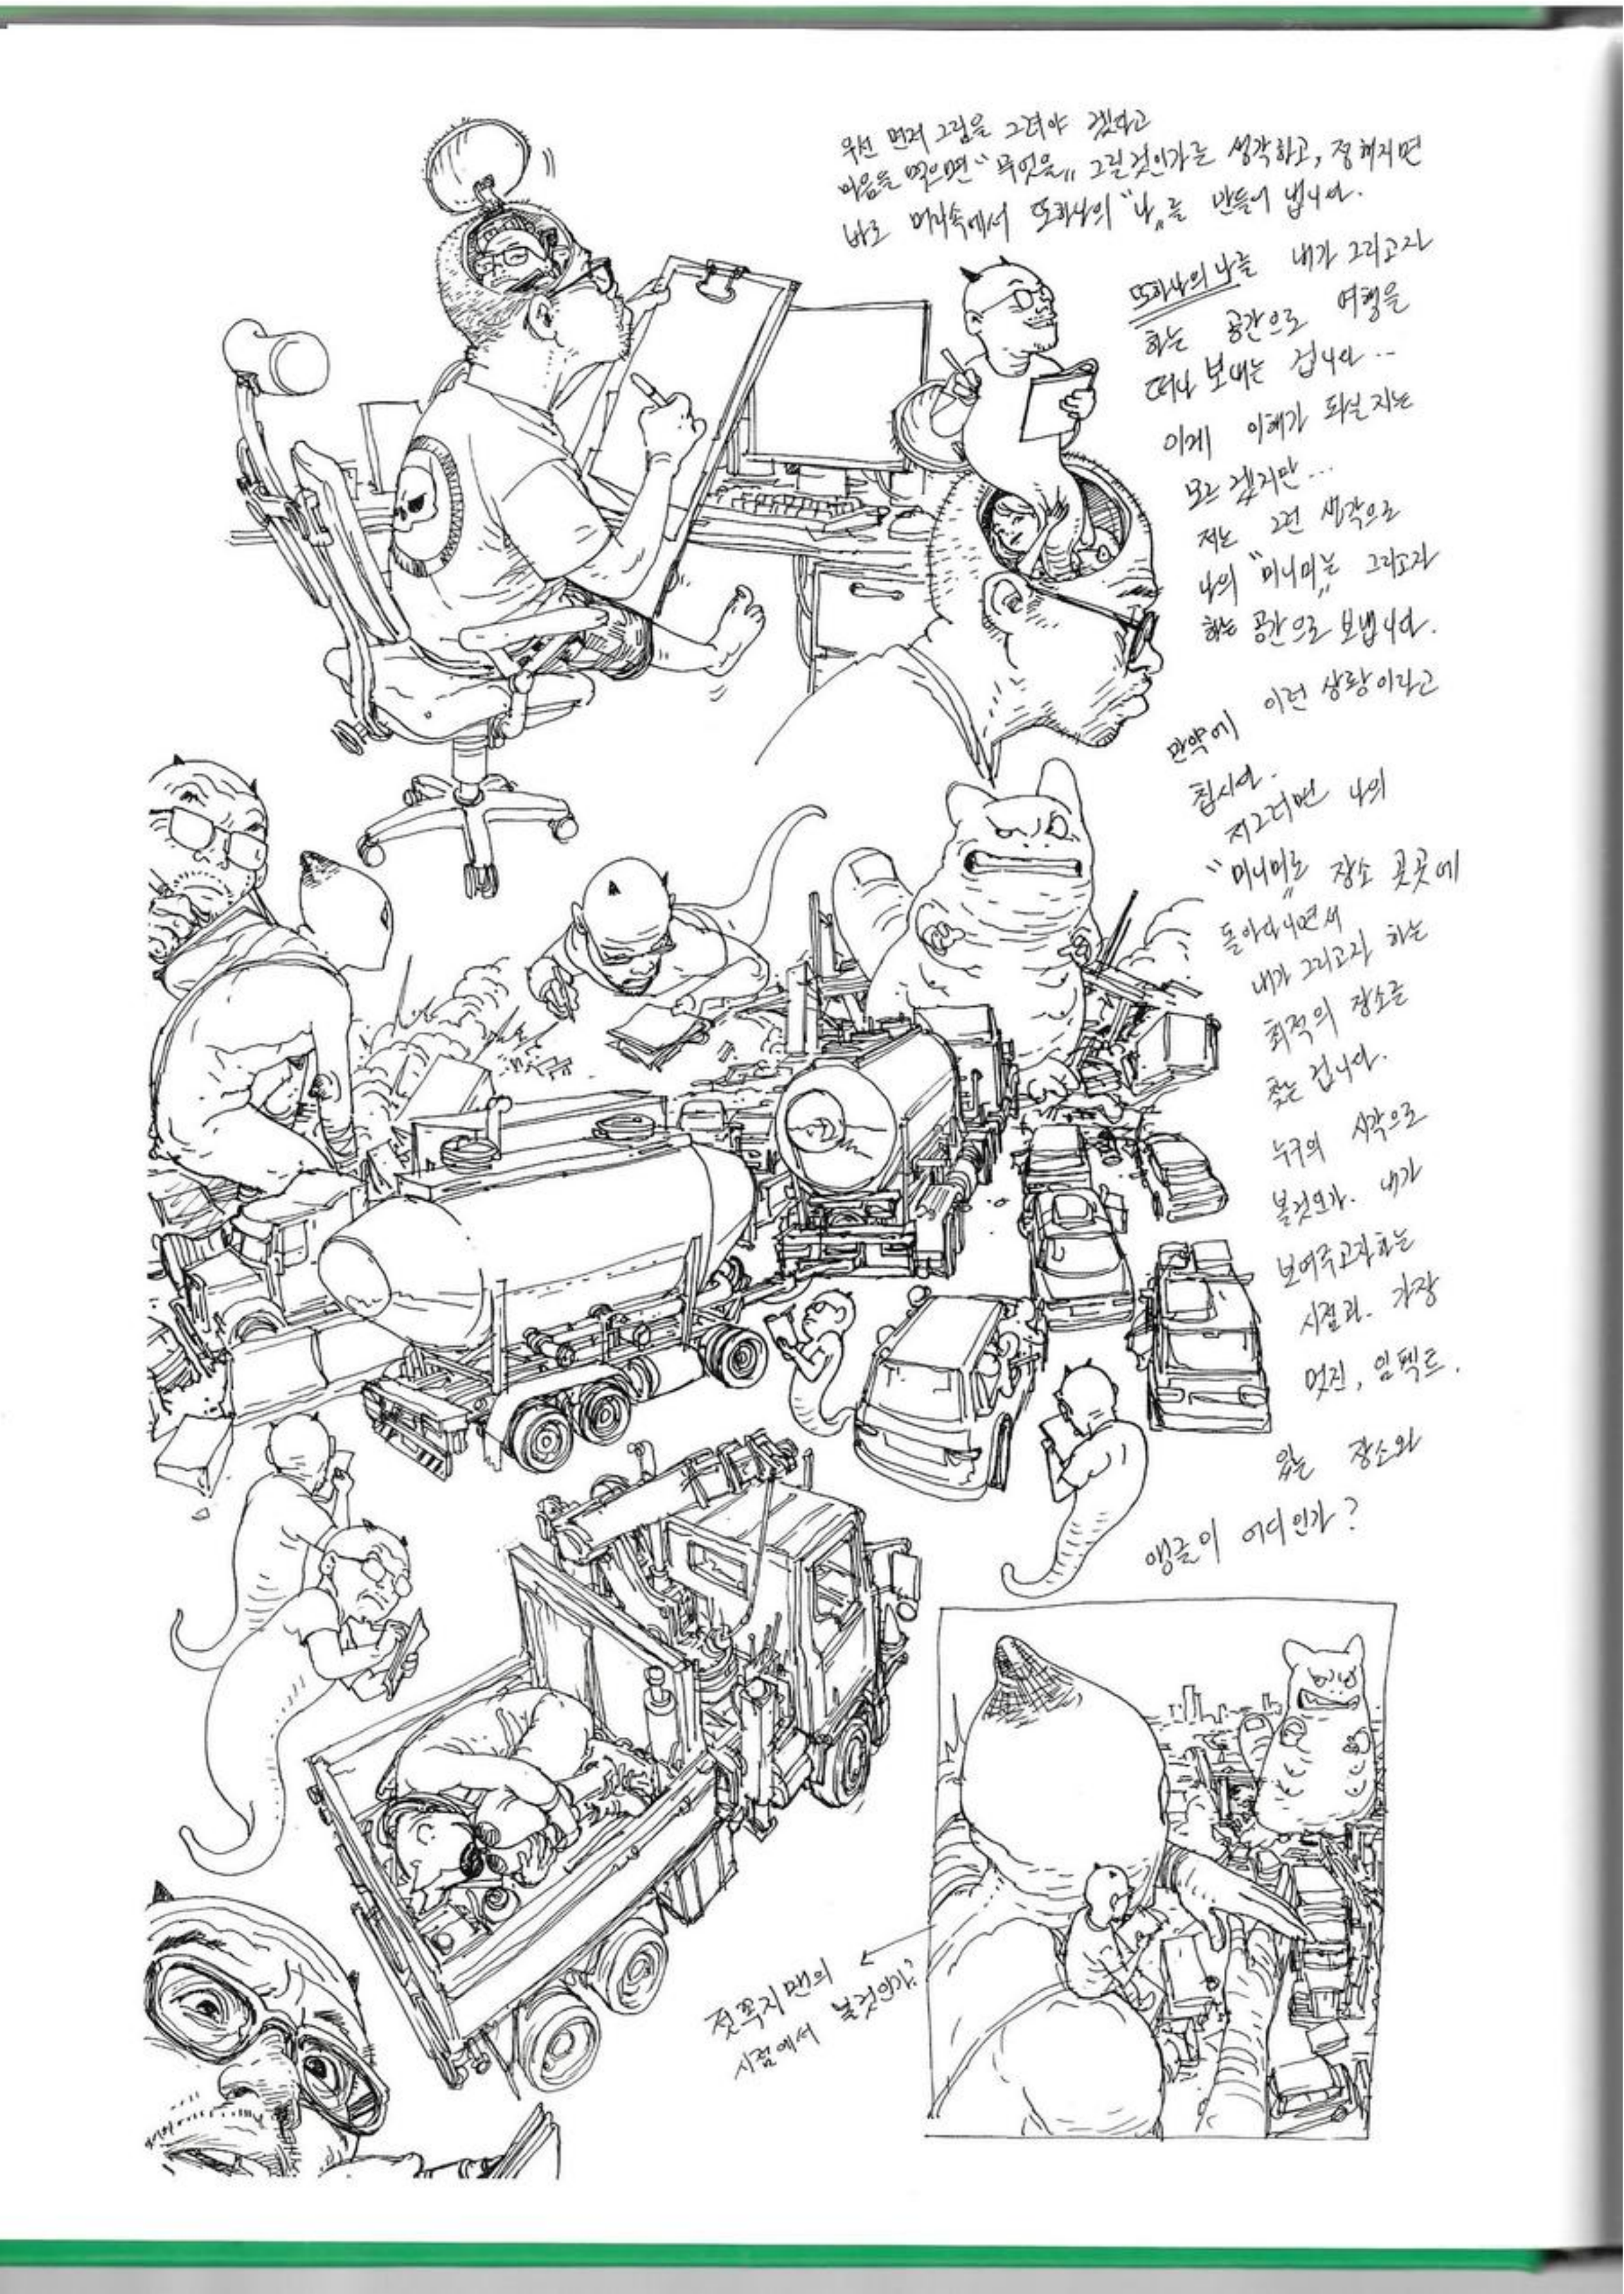 우선 먼저 그림을 그려야 겠다고
마음을 먹으면 "무엇을" 그릴것인가를 생각하고, 정해지면
바로 머리속에서 또하나의 "나"를 만들어 냅니다.
또하나의 나를 내가 그리고자
하는 공간으로 여행을
떠나 보내는 겁니다..
이게 이해가 되실지는
모르겠지만...
저는 그런 생각으로
나의 "미니미"는 그리고자
하는 공간으로 보냅니다.
만약에 이런 상황이라고
칩시다.
자그러면 나의
"미니미"로 장소 곳곳에
돌아다니면서
내가 그리고자 하는
최적의 장소를
찾는 겁니다.
누구의 시각으로
볼것인가. 내가
보여주고자하는
시점과. 가장
멋진, 임펙트.
있는 장소와
앵글이 어디인가?
젖꼭지맨의
시점에서 볼것인가?